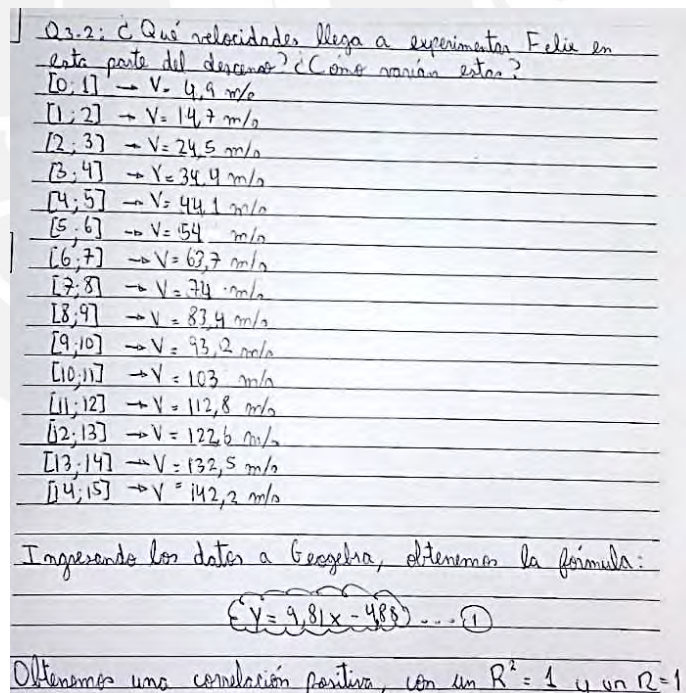 Q3.2: ¿Qué velocidades llega a experimentar Felix en
esta parte del descenso? ¿Cómo varían estas?
[0; 1] → V= 4,9 m/s
[1; 2] → V= 14,7 m/s
[2; 3] → V= 24,5 m/s
[3; 4] → V= 34,4 m/s
[4; 5] → V= 44,1 m/s
[5; 6] → V= 54 m/s
[6; 7] → V= 63,7 m/s
[7; 8] → V= 74 m/s
[8; 9] → V= 83,4 m/s
[9; 10] → V= 93,2 m/s
[10; 11] → V= 103 m/s
[11; 12] → V= 112,8 m/s
[12; 13] → V= 122,6 m/s
[13; 14] → V= 132,5 m/s
[14; 15] → V= 142,2 m/s
Ingresando los datos a Geogebra, obtenemos la fórmula:
Y= 9,81x - 4,88 ... ①
Obtenemos una correlación positiva, con un R²=1 y un R=1